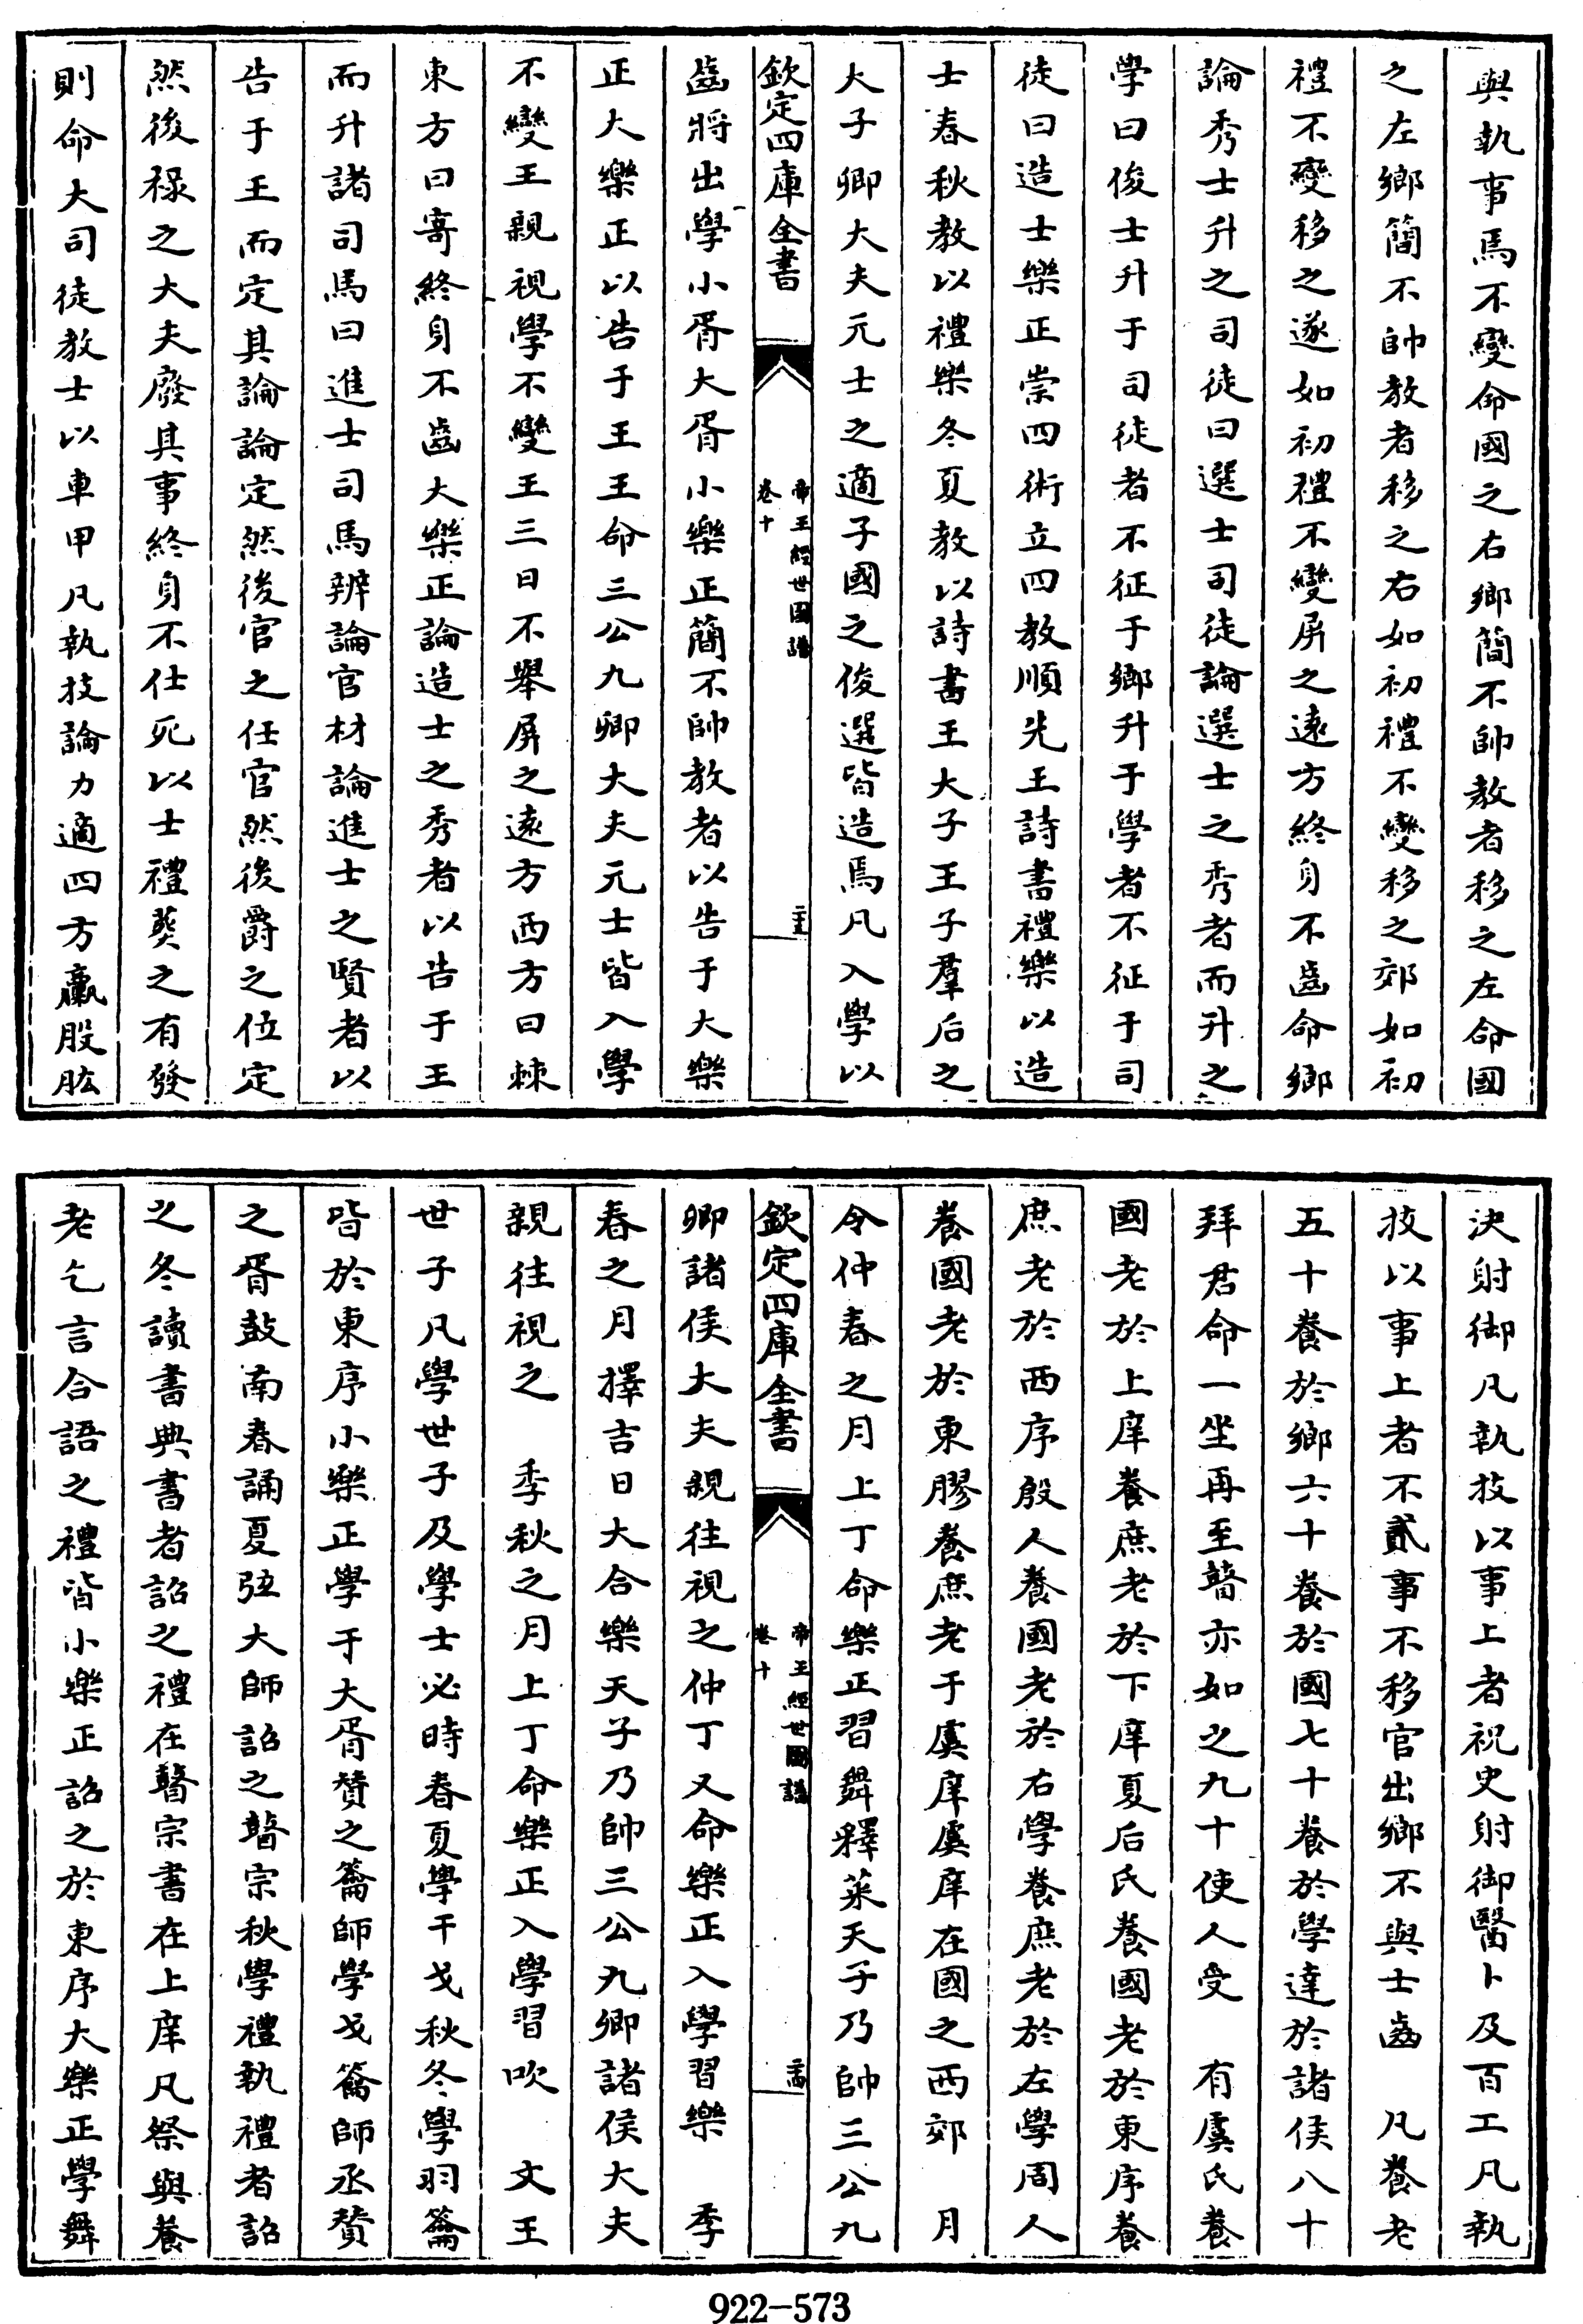 與執事焉不變命國之右鄉簡不帥教者移之左命國
之左鄉簡不帥教者移之右如初禮不變移之郊如初
禮不變移之遂如初禮不變屏之遠方終身不齒命鄉
論秀士升之司徒曰選士司徒論選士之秀者而升之
學曰俊士升于司徒者不征于鄉升于學者不征于司
徒曰造士樂正崇四術立四教順先王詩書禮樂以造
士春秋教以禮樂冬夏教以詩書王大子王子羣后之
大子卿大夫元士之適子國之俊選皆造焉凡入學以
欽定四庫全書
帝王經世圖譜
卷十
齒將出學小胥大胥小樂正簡不帥教者以告于大樂
正大樂正以告于王王命三公九卿大夫元士皆入學
不變王親視學不變王三日不舉屏之遠方西方曰棘
東方曰寄終身不齒大樂正論造士之秀者以告于王
而升諸司馬曰進士司馬辨論官材論進士之賢者以
告于王而定其論論定然後官之任官然後爵之位定
然後祿之大夫廢其事終身不仕死以士禮葬之有發
則命大司徒教士以車甲凡執技論力適四方臝股肱
決射御凡執技以事上者祝史射御醫卜及百工凡執
技以事上者不貳事不移官出鄉不與士齒　凡養老
五十養於鄉六十養於國七十養於學達於諸侯八十
拜君命一坐再至瞽亦如之九十使人受　有虞氏養
國老於上庠養庶老於下庠夏后氏養國老於東序養
庶老於西序殷人養國老於右學養庶老於左學周人
養國老於東膠養庶老于虞庠虞庠在國之西郊　月
令仲春之月上丁命樂正習舞釋菜天子乃帥三公九
欽定四庫全書
帝王經世圖譜
卷十
卿諸侯大夫親往視之仲丁又命樂正入學習樂　季
春之月擇吉日大合樂天子乃帥三公九卿諸侯大夫
親往視之　季秋之月上丁命樂正入學習吹　文王
世子凡學世子及學士必時春夏學干戈秋冬學羽籥
皆於東序小樂正學干大胥贊之籥師學戈籥師丞贊
之胥鼓南春誦夏弦大師詔之瞽宗秋學禮執禮者詔
之冬讀書典書者詔之禮在瞽宗書在上庠凡祭與養
老乞言合語之禮皆小樂正詔之於東序大樂正學舞
922-573